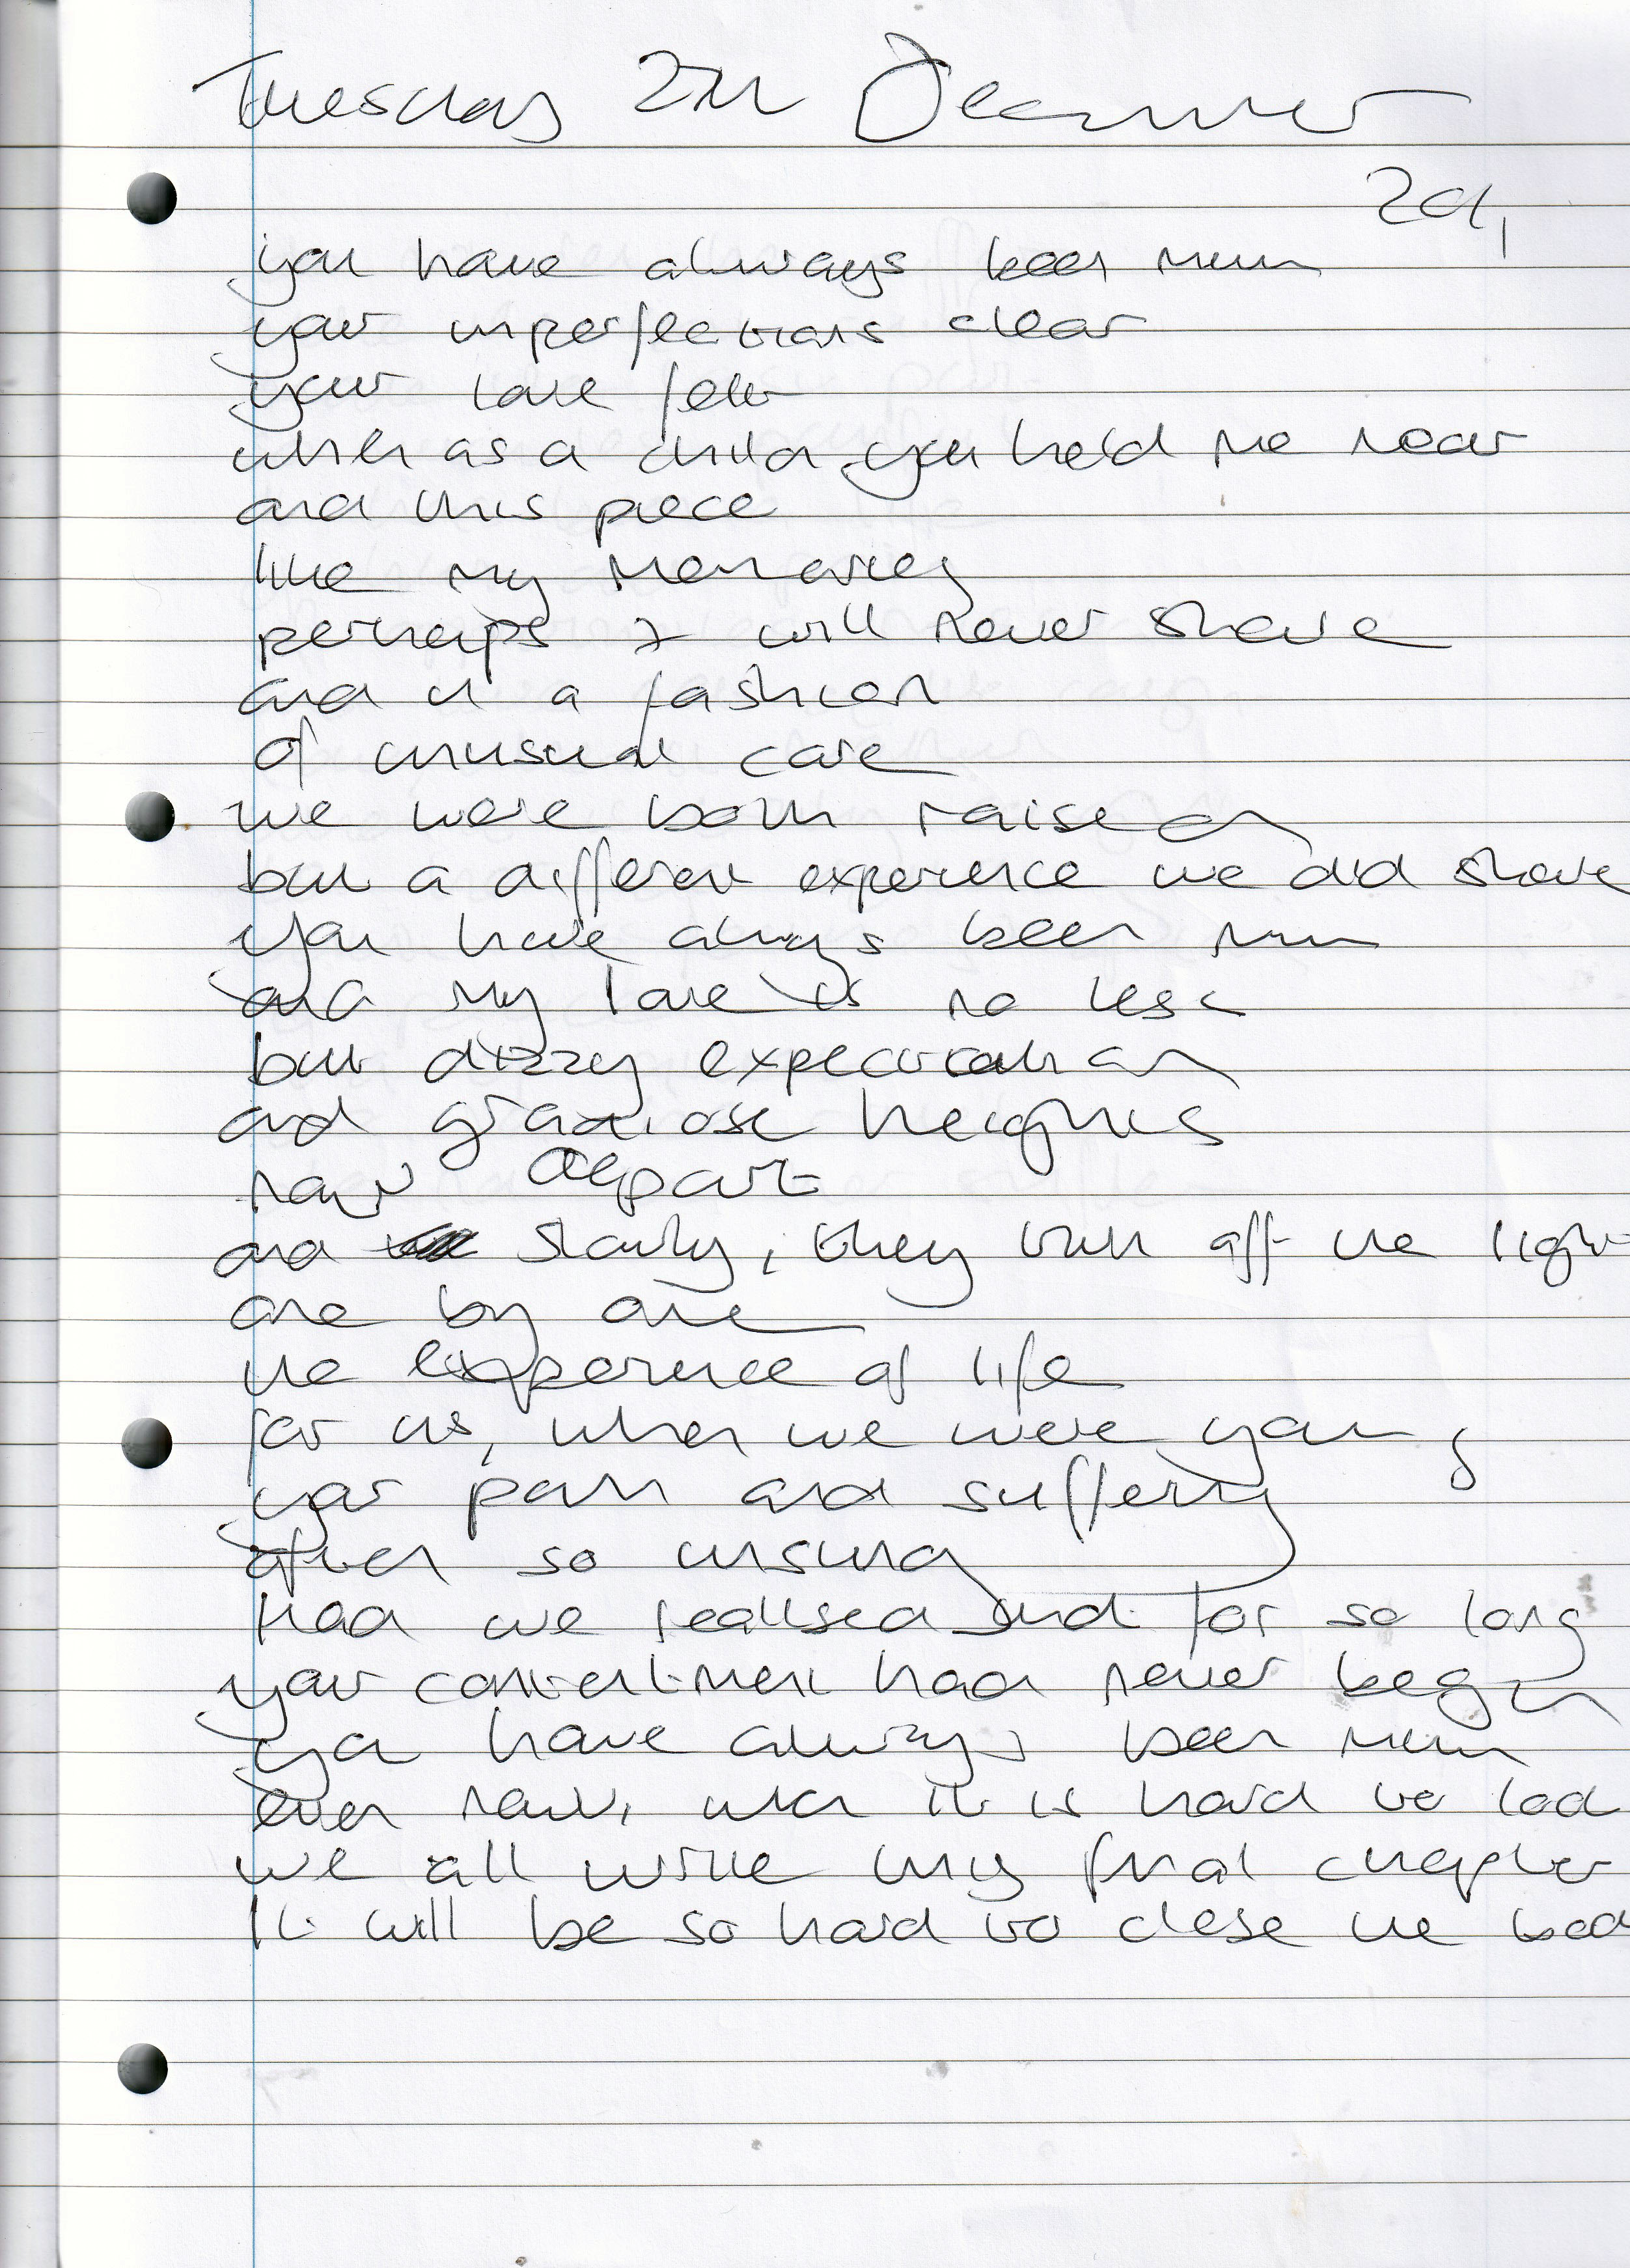 Tuesday 2nd December
you have always been mum
your imperfections clear
your love felt
when as a child you held me near
and this piece
like my memories
perhaps I will never share
and in a fashion
of unusual care
we were both raised
but a different experience we did share
you have always been mum
and my love is no less
but dizzy expectation
and grandiose heights
now depart
and slowly, they turn off the light
one by one
the experience of life
for us, when we were young
your pain and suffering
often so unsung
had we realised and for so long
your contentment had never begun
you have always been mum
even now, when it is hard to look
we all write my final chapter
It will be so hard to close the book